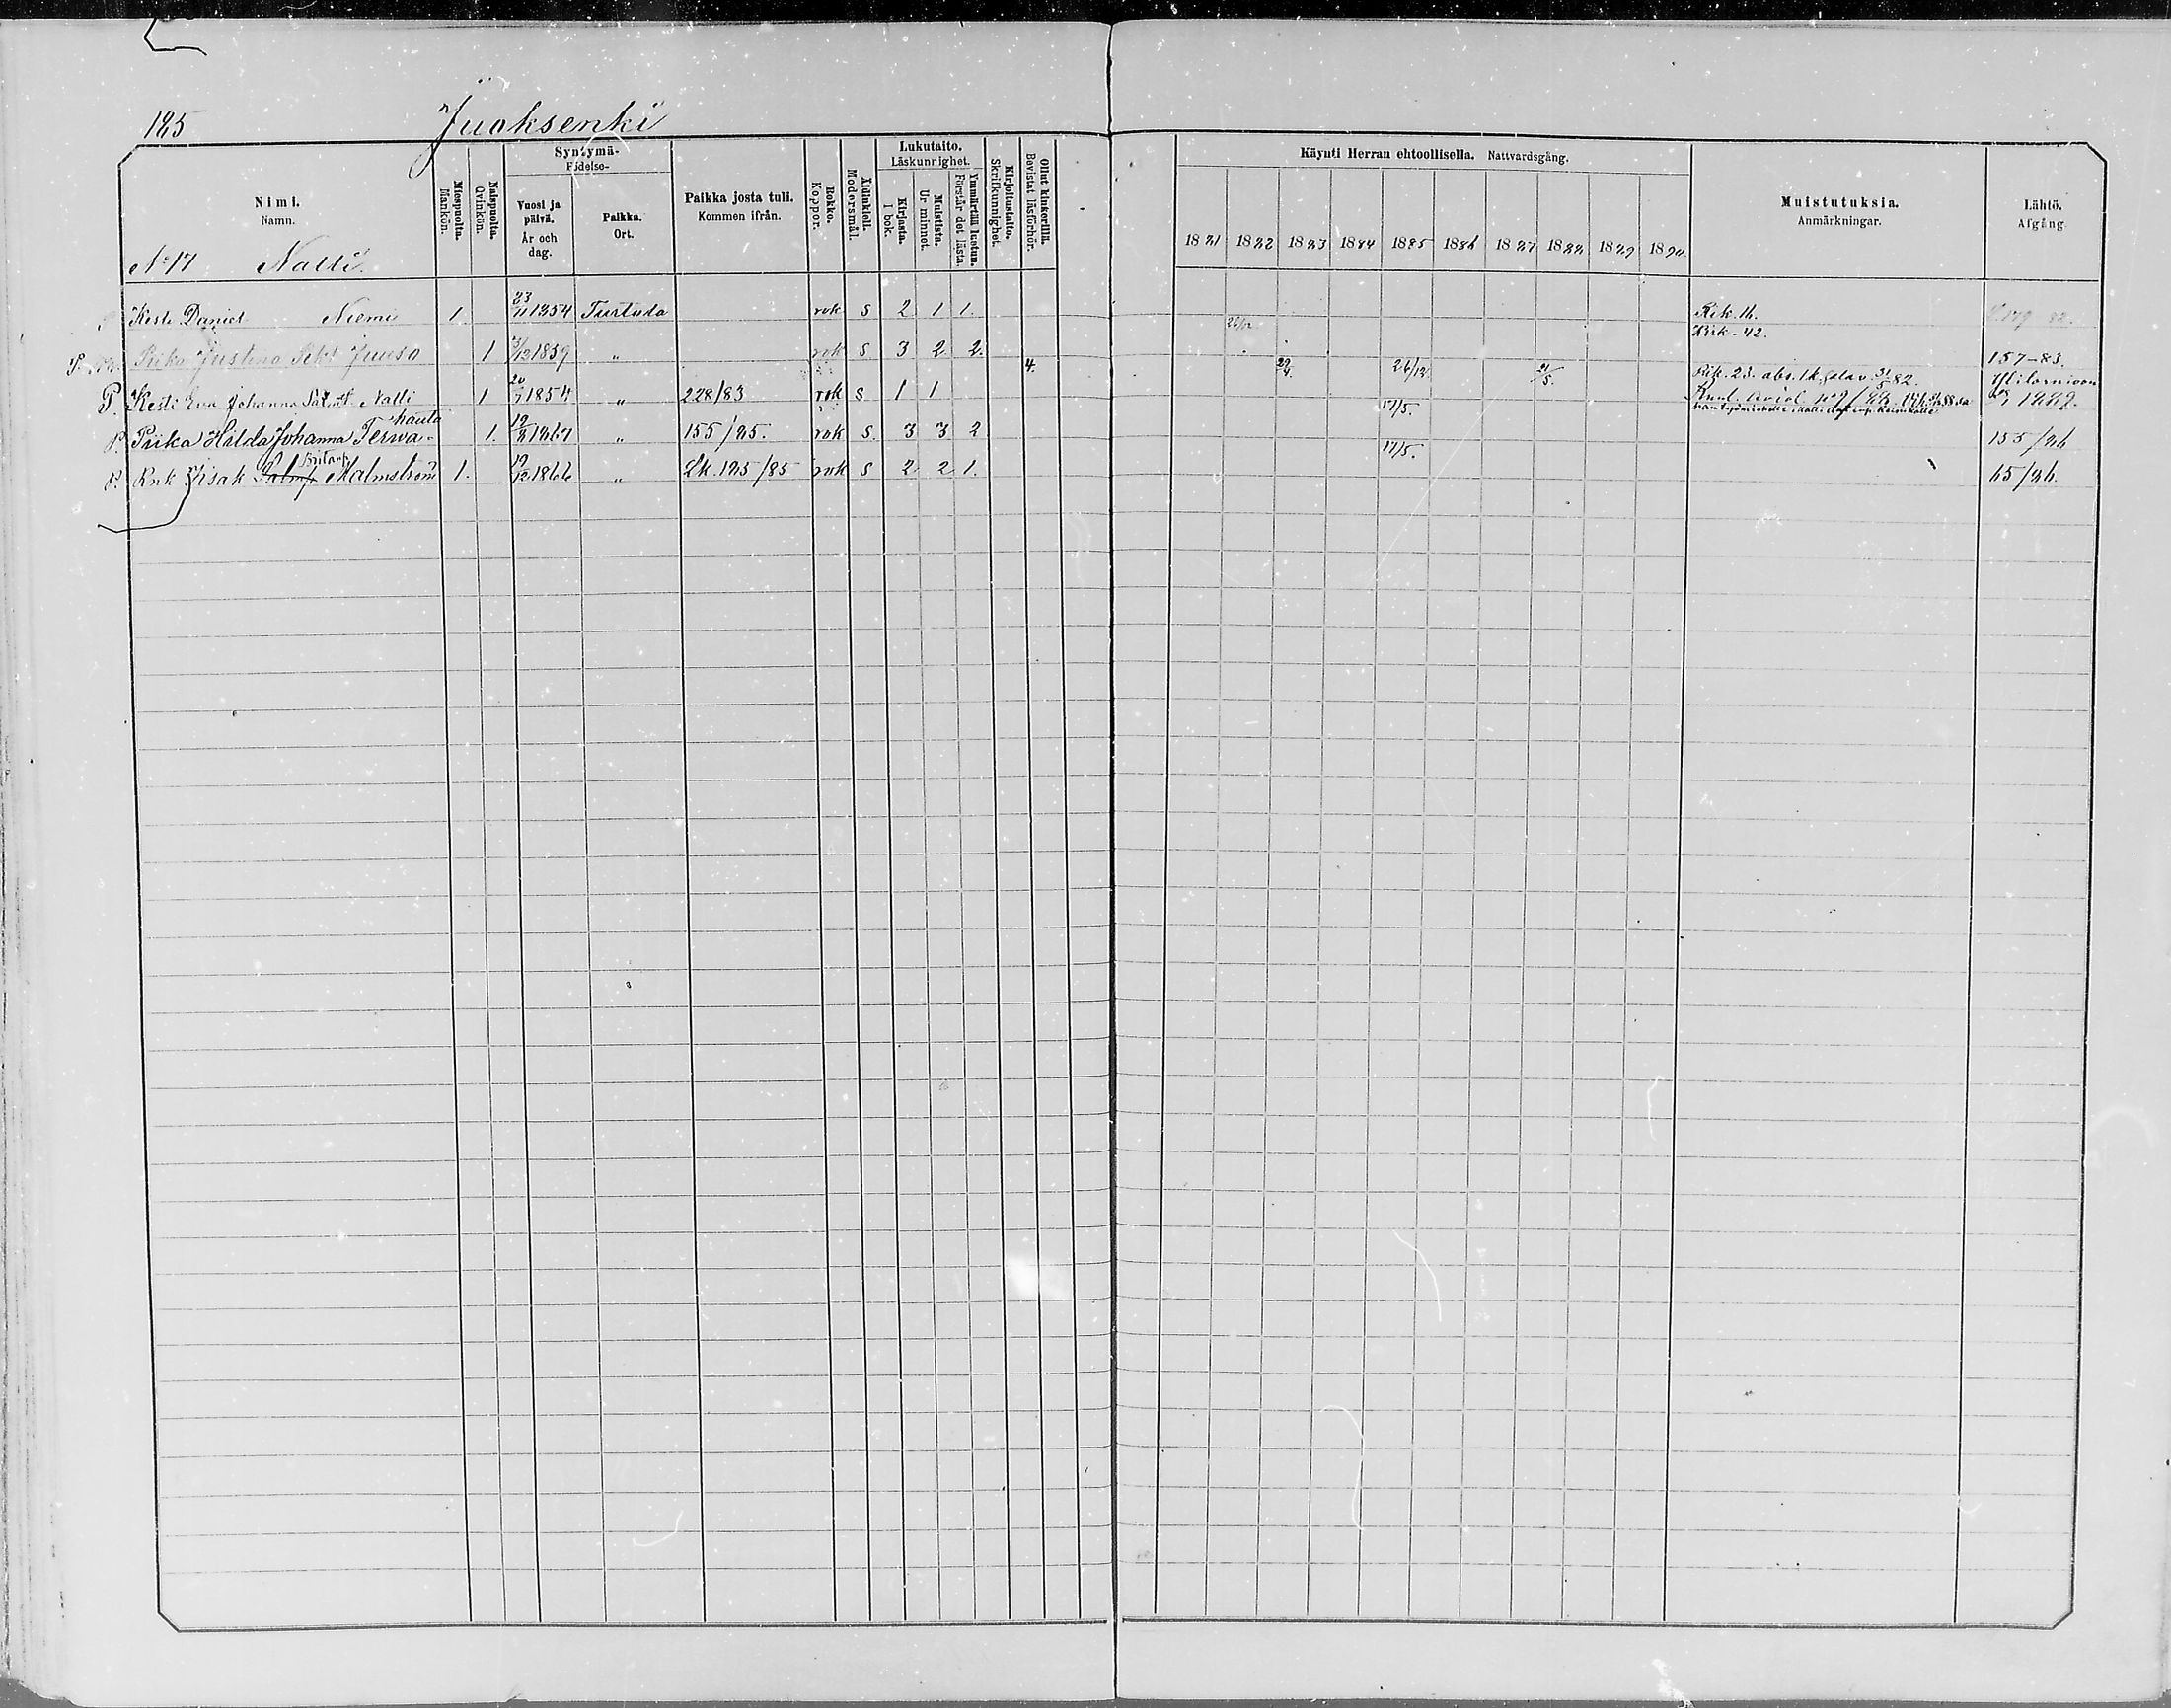 185 Juoksenki
Nimi.
Namn.
No 17 Natti.
Miespuolta.
Mankön.
Naispuolta.
Qvinkön.
Syntymä-
Födelse-
Vuosi ja
päivä.
År och
dag.
Paikka.
Ort.
Paikka josta tuli.
Kommen ifrån.
Rokko.
Koppor.
Äidinkieli.
Modersmål.
Lukutaito.
Läskunnighet.
Kirjasta.
I bok.
Muistista.
Ur minnet.
Ymmärtää luetun.
Förstår det lästa.
Kirjoitustaito.
Skrifkunnighet.
Ollut kinkerillä.
Bevistat läsförhör.
Käynti Herran ehtoollisella. Nattvardsgång.
1881 1882 1883 1884 1885 1886 1887 1888 1889 1890
Muistutuksia.
Anmärkningar.
Lähtö.
Afgång.
Kesti Daniel Niemi 1. 23/11 1854 Turtula rok s 2 1 1. Rik. 16.
26/12 Kirk. 42.
Piika Justina Juuso 1 3/12 1859 " rok s 3 2 2. 157-83.
4. 29/4. 26/12 21/5. Rik. 23.
P. Kesti Eva Johanna Natti 1 20/7 1854 " 228/83 rok s 1 1 Ylitornioon 1889.
17/5.
hauta
P. Piika Hilda Johanna Terwa- 1. 1867 " 155/85. rok s. 3 3 2 155/86
17/5.
P. Rnk Iisak Malmström 1. 19/12 1866 " Lk. 125/85 rok s 2 2 1. 65/86.